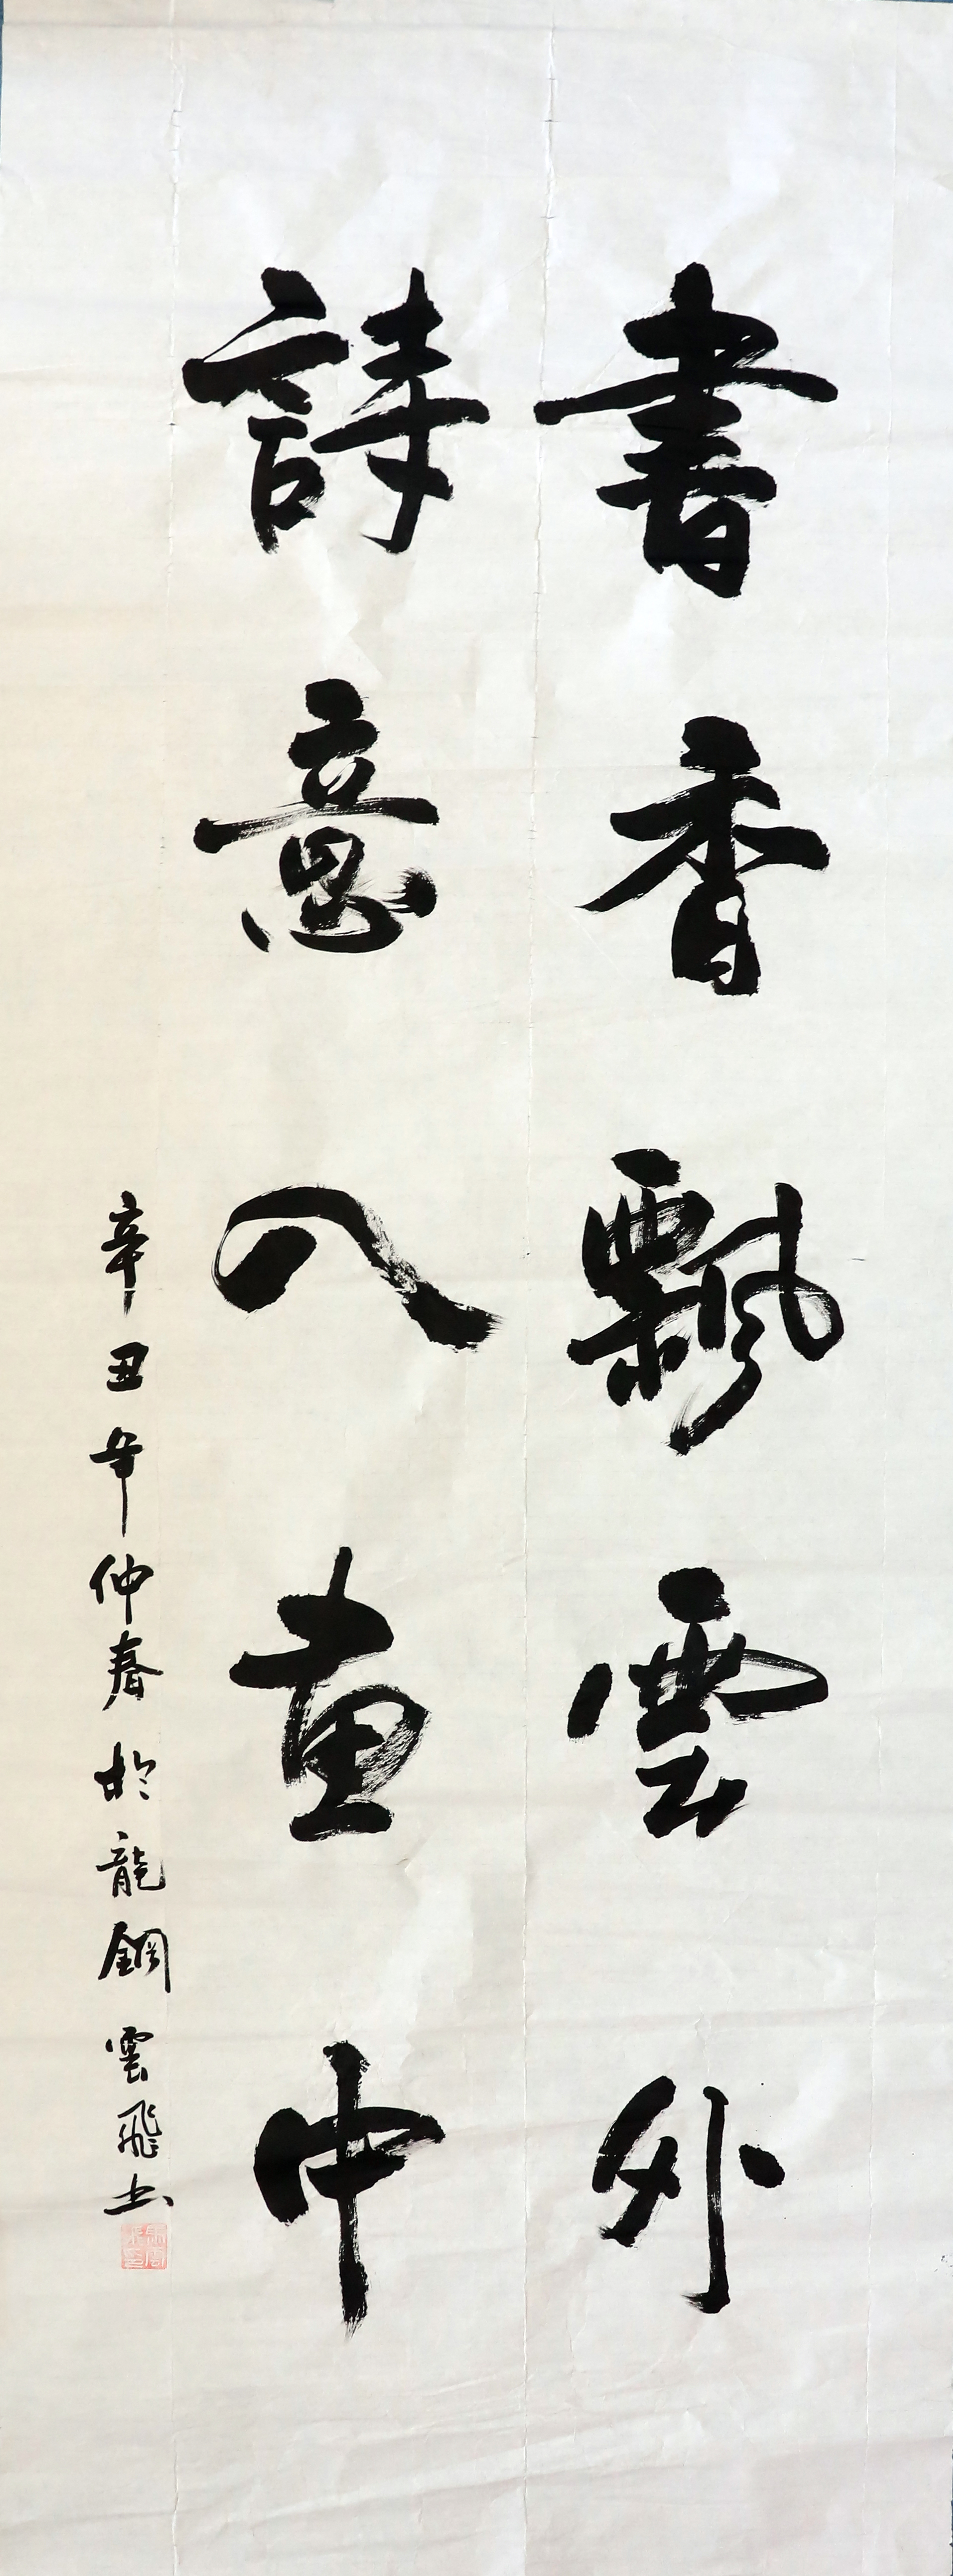 書香飄雲外
詩意入畫中
辛丑年仲春於龍鋼雲飛书